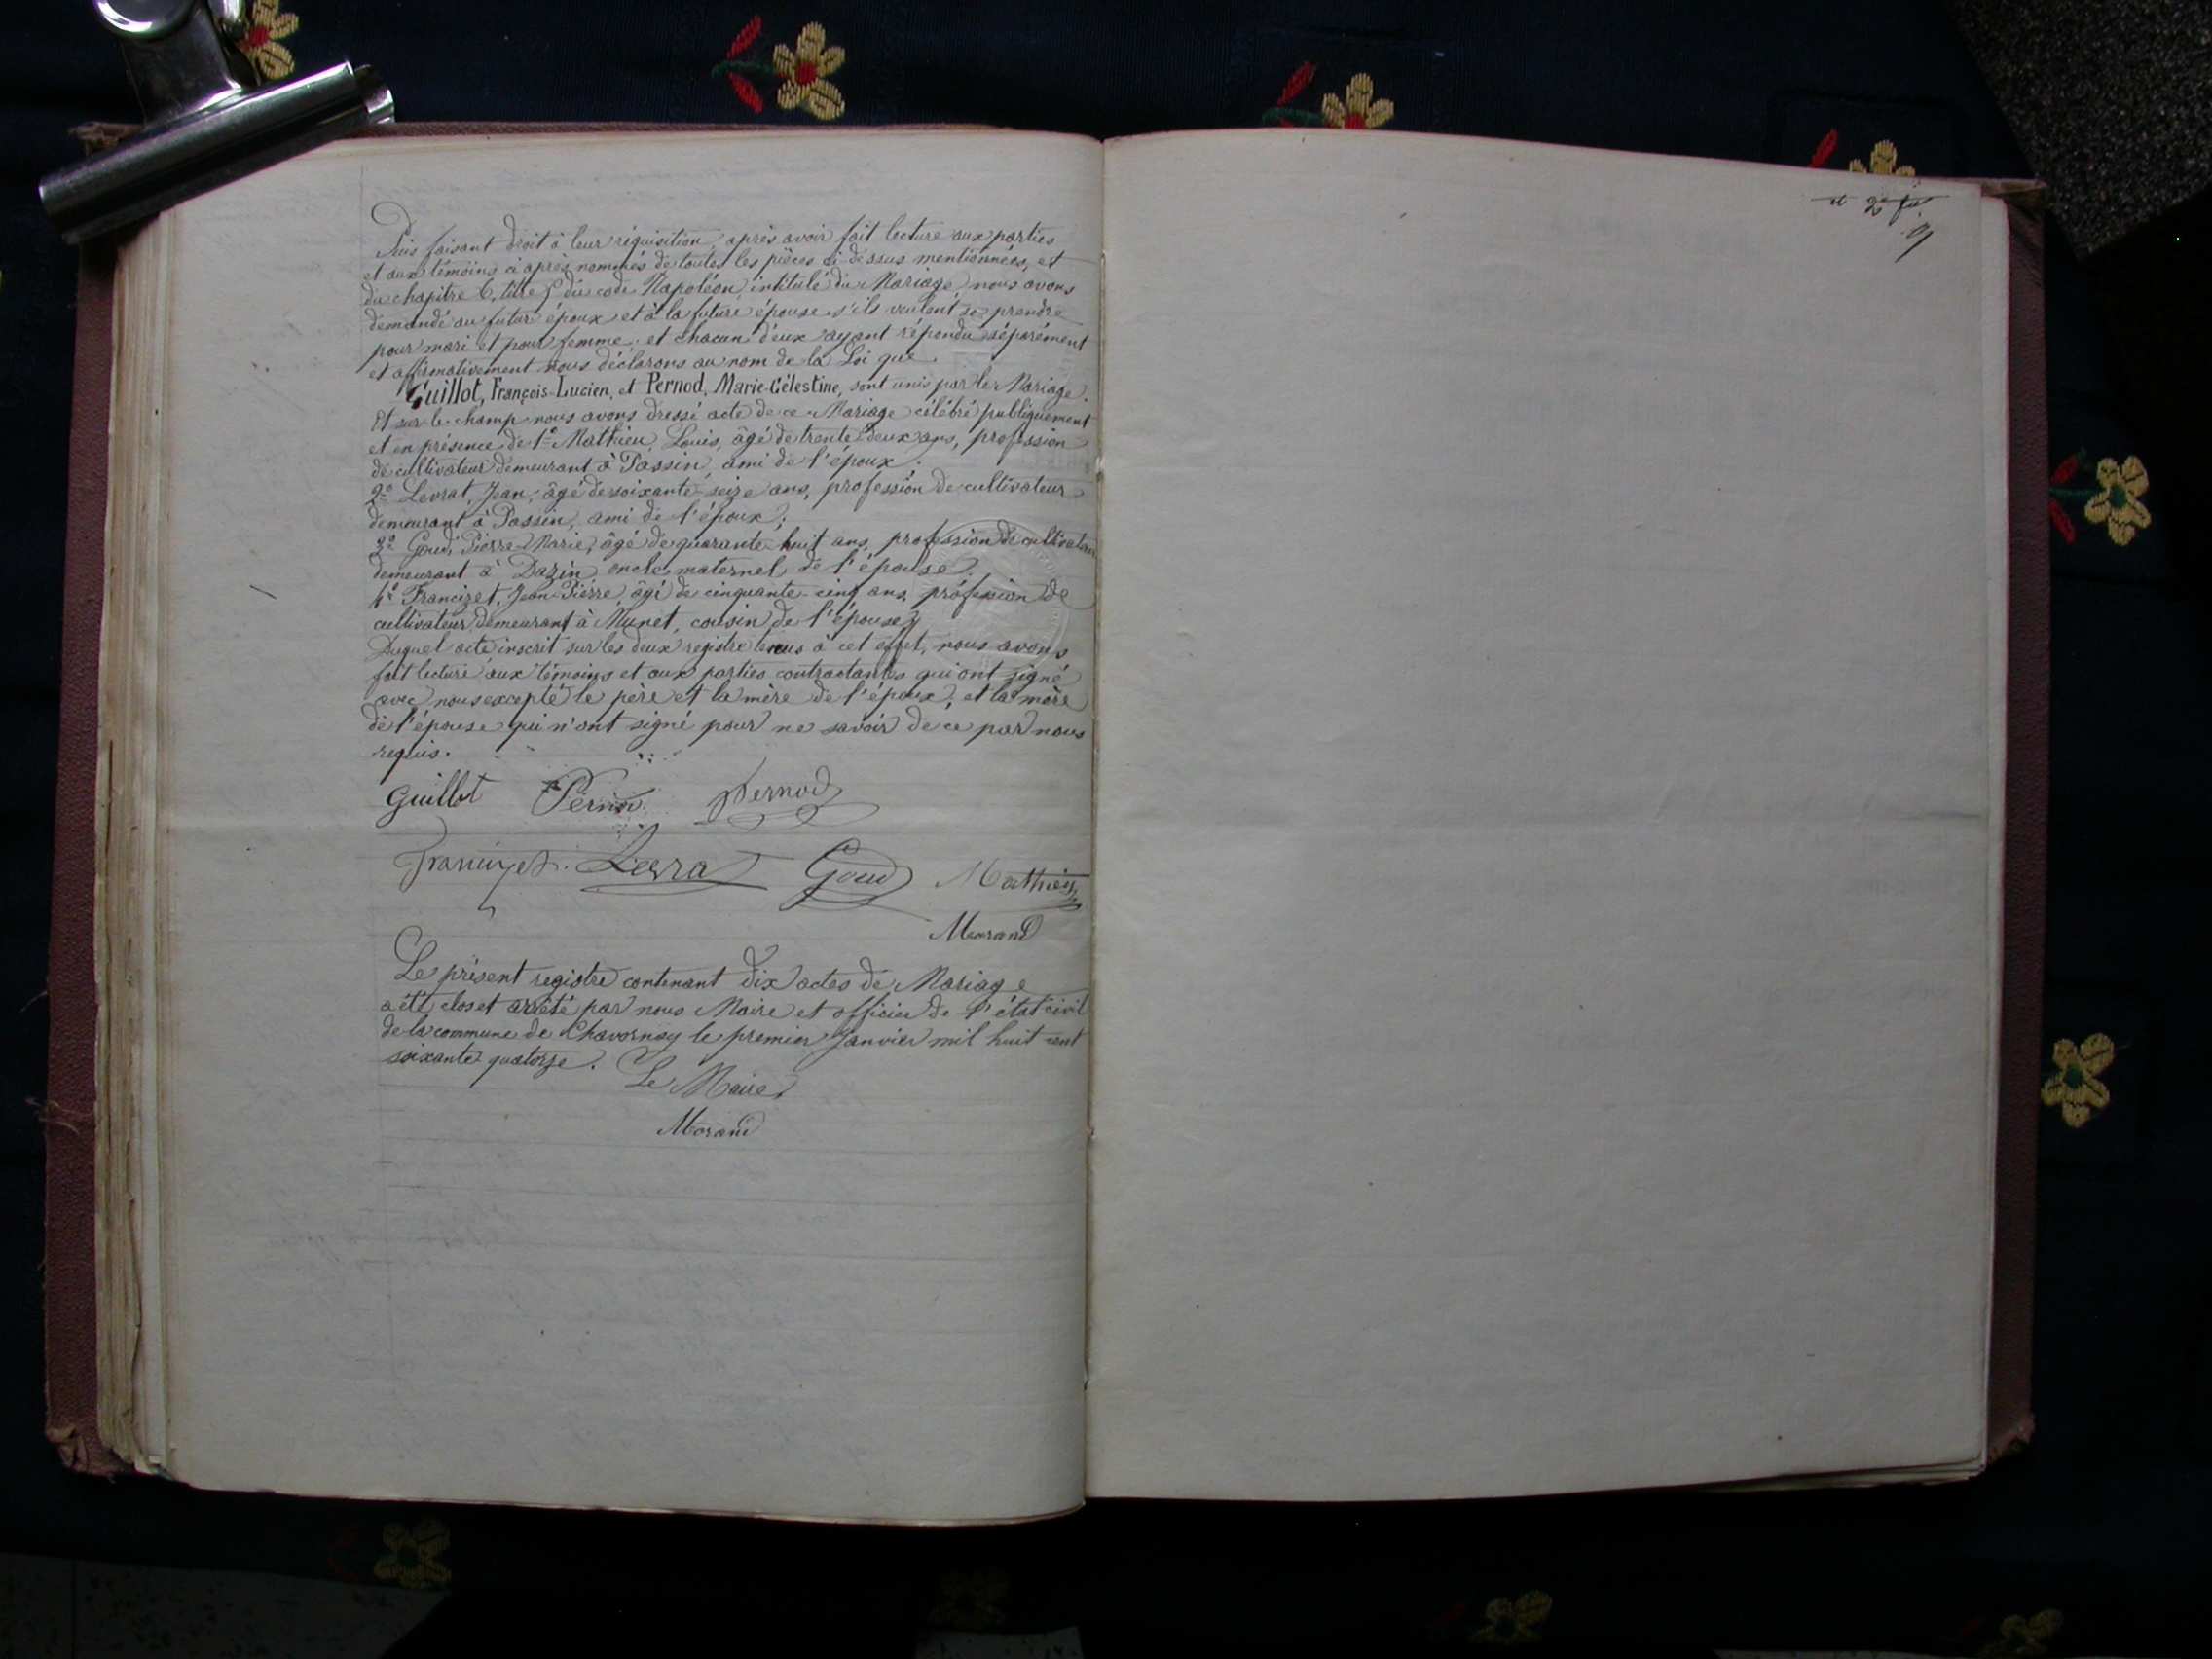 Puis faisant droit à leur réquisition, après avoir fait lecture aux parties
et aux témoins ci après nommés de toutes les pièces ci-dessus mentionnées, et
du chapitre 6, titre 5 du code Napoléon intitulé du Mariage nous avons
demandé au futur époux et à la future épouse s'ils veulent se prendre
pour mari et pour femme; et chacun d'eux ayant répondu séparément
et affirmativement nous déclarons au nom de la Loi que
Guillot, François-Lucien, et Pernod, Marie-Célestine, sont unis par le Mariage.
Et sur-le-champ nous avons dressé acte de ce Mariage célébré publiquement
et en présence de 1º Mathieu, Louis, âgé de trente-deux ans, profession
de cultivateur demeurant à Passin, ami de l'époux.
2º Levrat, Jean, âgé de soixante-seize ans, profession de cultivateur
demeurant à Passin, ami de l'époux;
3º Goud, Pierre Marie, âgé de quarante-huit ans, profession de cultivateur
demeurant à Dazin oncle maternel de l'épouse.
4º Francizet, Jean-Pierre, âgé de cinquante-cinq ans, profession de
cultivateur demeurant à Munet, cousin de l'épouse
Duquel acte inscrit sur les deux registre tenus à cet effet, nous avons
fait lecture aux témoins et aux parties contractantes qui ont signé
avec nous excepté le père et la mère de l'époux, et la mère
de l'épouse qui n'ont signé pour ne savoir de ce par nous
requis.
Guillot Pernod Pernod
Francizet. Levrat Goud Mathieu
Morand
Le présent registre contenant dix actes de Mariage
a été clos et arrêté par nous Maire et officier de l'état civil
de la commune de Chavornay le premier Janvier mil huit cent
soixante quatorze.
Le Maire,
Morand
et 2e fe